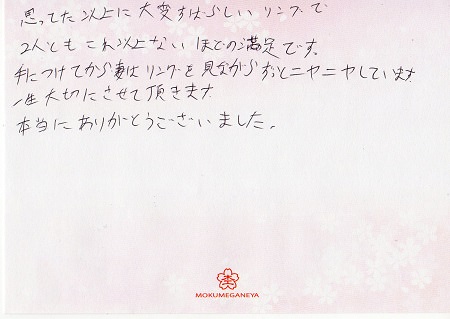 思ってた以上に大変すばらしいリングで
2人ともこれ以上ないほどの満足です。
手につけてから妻はリングを見ながらずっとニヤニヤしています
一生大切にさせて頂きます
本当にありがとうございました。
MOKUMEGANEYA